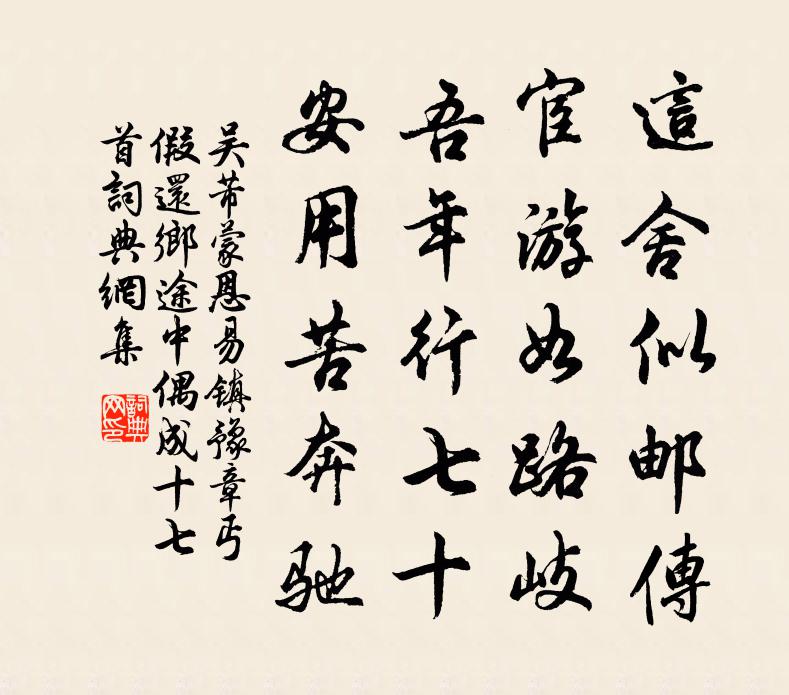 這舍似邮傳
宦游如路岐
吾年行七十
安用苦奔驰
吴芾蒙恩易鎮豫章丐
假還鄉途中偶成十七
首詞典網集
詞典
网印